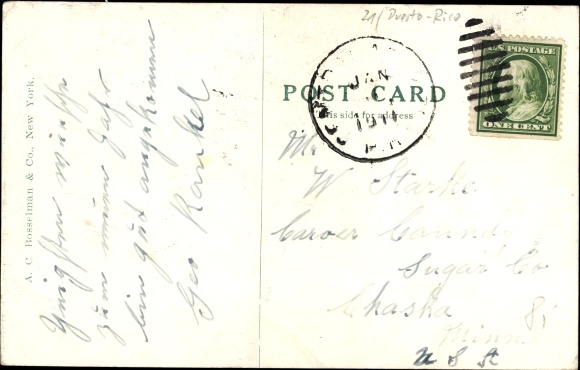 21/ Puerto-Rico
A. C. Bosselman & Co., New York.
Innigsten Wünsche
zum neuen Jahr
bin gut angekommen
Geo Rankel
POST CARD
This side for address
JAN
1911
U.S. POSTAGE
ONE CENT
Mr
W Starke
Carver County
Sugar Co
Chaska
Minn
U S A